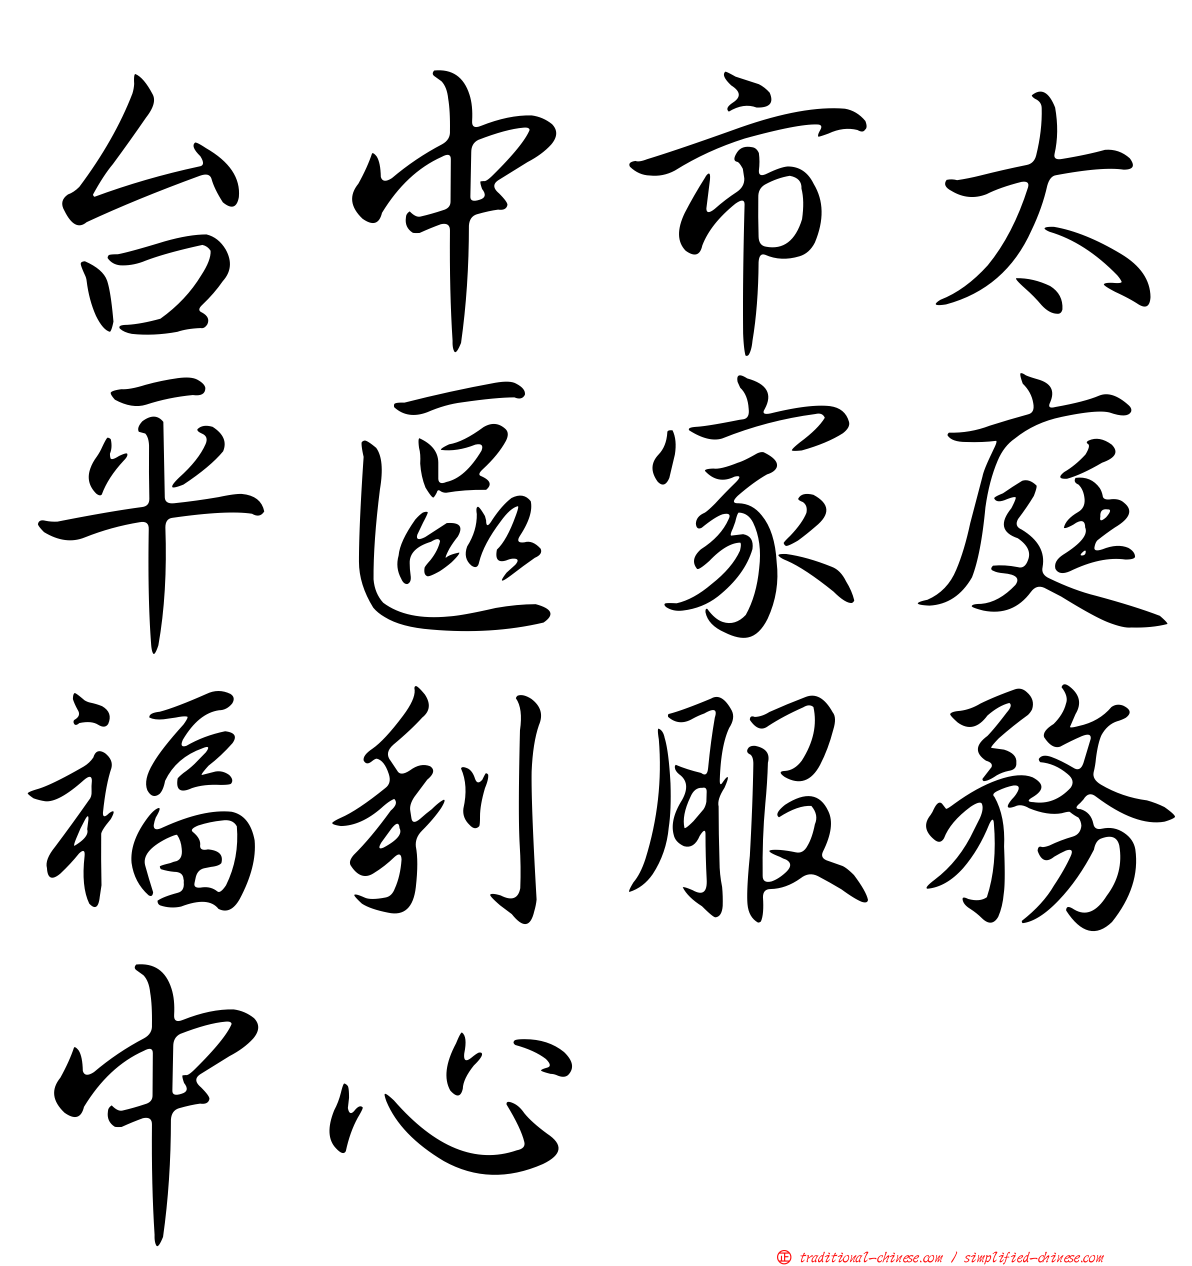 台中市太
平區家庭
福利服務
中心
正 traditional-chinese.com / simplified-chinese.com